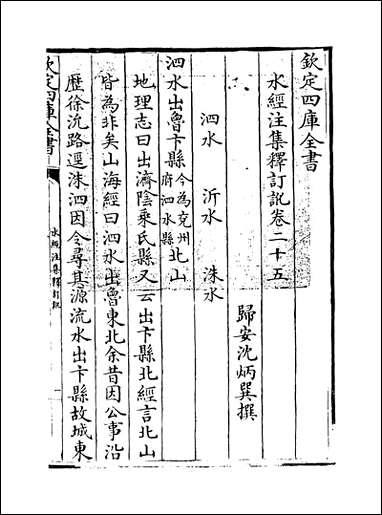 欽定四庫全書
水經注集釋訂訛卷二十五
歸安沈炳巽撰
泗水 沂水 洙水
泗水出魯卞縣今為兖州府泗水縣北山
地理志曰出濟隂乗氏縣又云出卞縣北經言北山
皆為非矣山海經曰泗水出魯東北余昔因公事沿
歴徐沇路逕洙泗因令尋其源流水出卞縣故城東
欽定四庫全書
水經注集釋訂訛
一